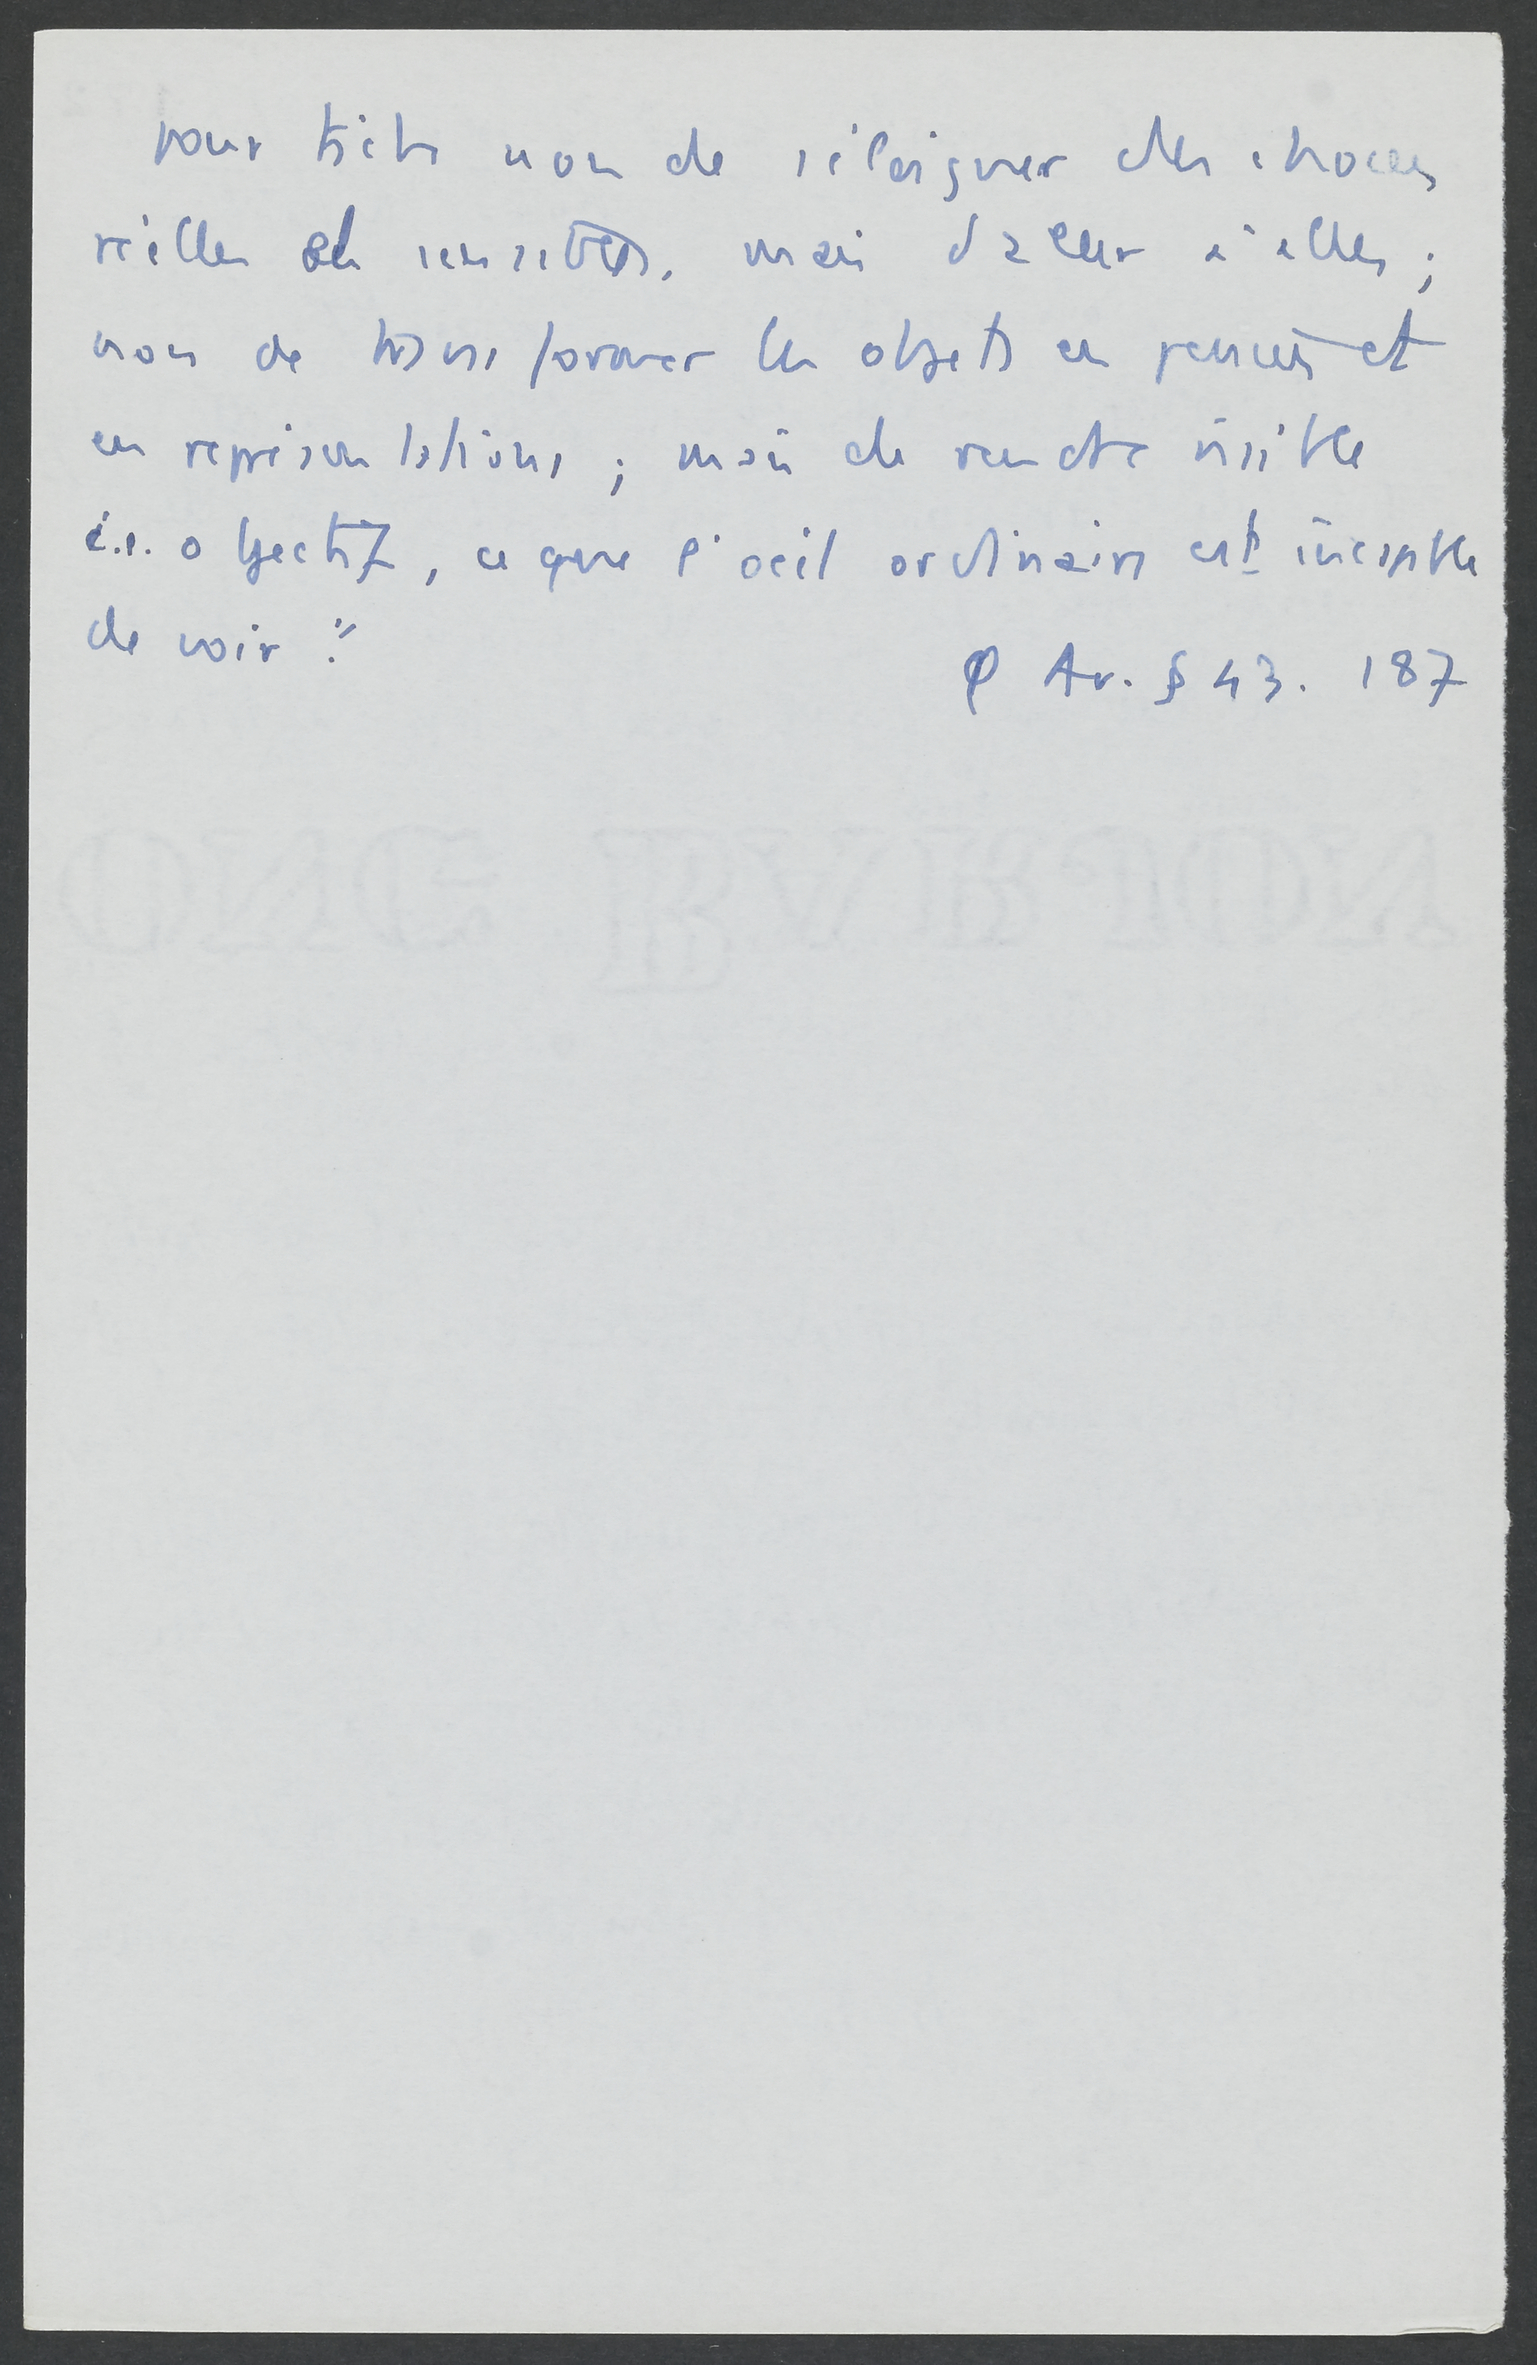 pour tâche non de s'éloigner des choses
réelles et sensibles, mais d'aller à elles ;
non de transformer les objets en pensées et
en représentations ; mais de rendre visible
i.e. objectif, ce que l'oeil ordinaire est incapable
de voir."
φ Av. § 43. 187